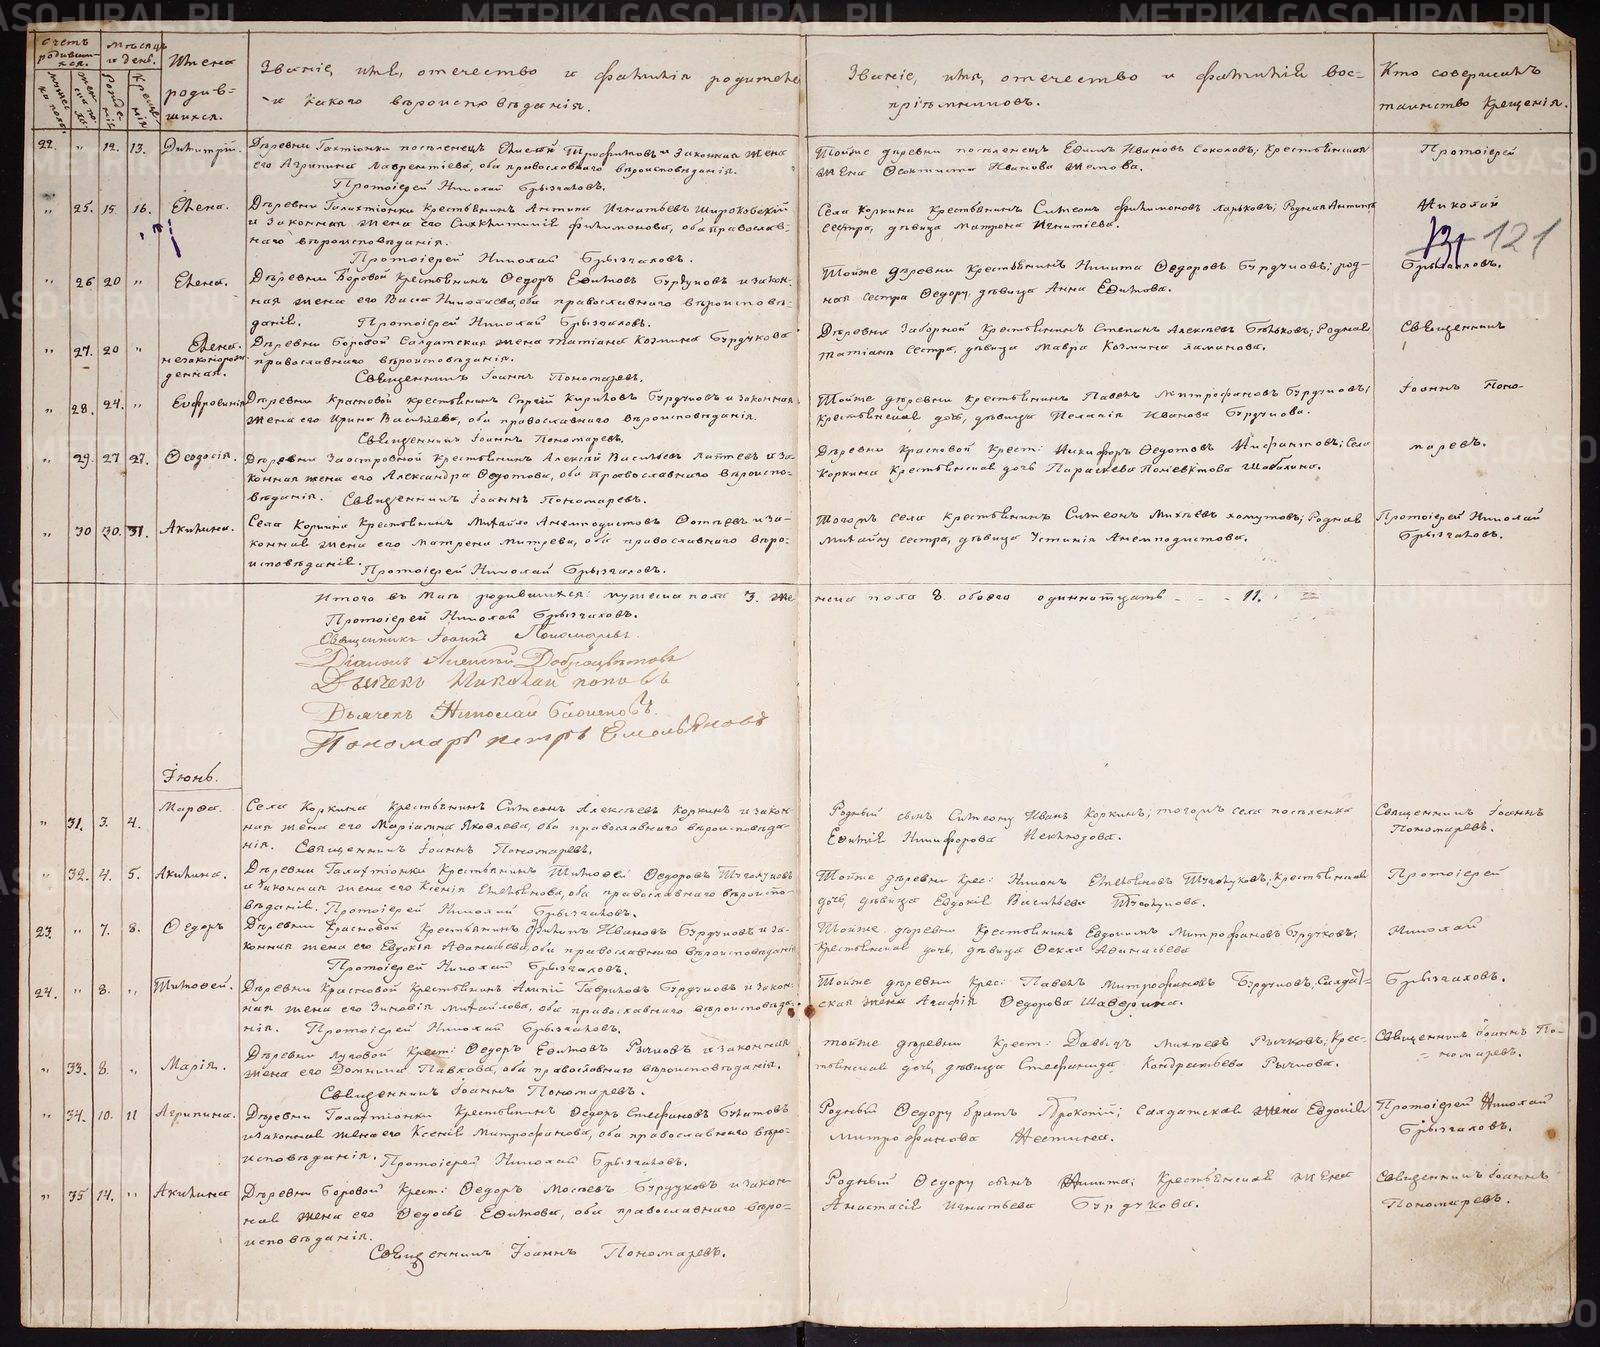 METRIKI.GASO-URAL.RU
Счетъ родившихся.
Мѣсяцъ и день.
Имена родившихся.
Званіе, имя, отечество и фамилія родителей
и какого вѣроисповѣданія.
Званіе, имя, отечество и фамилія вос-
пріѣмниковъ.
Кто совершилъ
таинство крещенія.
22. " 12. 13. Димитрій.
Деревни Галактіонки поселенецъ Трофимовъ и законная жена
его Агрипина Лаврентіева, оба православнаго вѣроисповѣданія.
Протоіерей Николай Брызгаловъ.
Тойже деревни поселенецъ Ефимъ Ивановъ Соколовъ; крестьянская
жена Феоктиста Иванова
Протоіерей
" 25. 15. 16. Елена.
Деревни Галактіонки крестьянинъ Антипа Игнатьевъ Широковскій
и законная жена его Филимонова, оба православ-
наго вѣроисповѣданія.
Протоіерей Николай Брызгаловъ.
Села Коркина крестьянинъ Симеонъ Филимоновъ Харьковъ; Родная Антипа
сестра, дѣвица Матрона Игнатіева.
Николай
121
" 26 20 " Елена.
Деревни Боровой крестьянинъ Федоръ Ефимовъ Бурдуковъ и закон-
ная жена его Васса Николаева, оба православнаго вѣроисповѣ-
данія. Протоіерей Николай Брызгаловъ.
Тойже деревни крестьянинъ Никита Федоровъ Бурдуковъ; род-
ная сестра Федору дѣвица Анна Ефимова.
Брызгаловъ.
" 27. 20 " Елена.
незаконорож-
денная.
Деревни Боровой Солдатская жена Татіана Козмина Бурдукова
православнаго вѣроисповѣданія.
Священникъ Іоаннъ Пономаревъ.
Деревни Заборной крестьянинъ Степанъ Алексѣевъ; Родная
Татіанѣ сестра, дѣвица Мавра Козмина
Священникъ
" 28. 24. " Евфросинія
Деревни Красновой крестьянинъ Сергій Кириловъ Бурдуковъ и законная
жена его Ирина Васильева, оба православнаго вѣроисповѣданія.
Священникъ Іоаннъ Пономаревъ.
Тойже деревни крестьянинъ Павелъ Митрофановъ Бурдуковъ;
крестьянская дочь, дѣвица Пелагія Иванова Бурдукова.
Іоаннъ Поно-
" 29. 27 27. Феодосія.
Деревни Заостровной крестьянинъ Алексѣй Васильевъ Лаптевъ и за-
конная жена его Александра Федотова, оба православнаго вѣроиспо-
вѣданія. Священникъ Іоаннъ Пономаревъ.
Деревни Красновой Крест: Никифоръ Федотовъ; Села
Коркина крестьянская дочь Параскева Поліевктова Шабалина.
маревъ.
" 30 30. 31. Акилина.
Села Коркина крестьянинъ Михайло Анемподистовъ и за-
конная жена его Матрена, оба православнаго вѣро-
исповѣданія. Протоіерей Николай Брызгаловъ.
Тогожъ села крестьянинъ Симеонъ Хомутовъ; Родная
Михайлу сестра, дѣвица Устинія Анемподистова.
Протоіерей Николай
Брызгаловъ.
Итого въ Маѣ родившихся: мужеска пола 3. же
нска пола 8. обоего одиннатцать - - - 11.
Протоіерей Николай Брызгаловъ.
Священникъ Іоаннъ Пономаревъ.
Діаконъ Алексѣй Доброцвѣтовъ
Дьячекъ Николай Поповъ
Дьячекъ Николай
Пономарь Петръ Емельяновъ
Іюнь.
" 31. 3. 4. Марфа.
Села Коркина крестьянинъ Симеонъ Алексѣевъ Коркинъ и закон-
ная жена его Маріамна Яковлева, оба православнаго вѣроисповѣда-
нія. Священникъ Іоаннъ Пономаревъ.
Родный сынъ Симеону Иванъ Коркинъ; тогожъ села поселенка
Никифорова
Священникъ Іоаннъ
Пономаревъ.
" 32. 4. 5. Акилина.
Деревни Галактіонки крестьянинъ Тимофей Федоровъ
и законная жена его Ксенія, оба православнаго вѣроиспо-
вѣданія. Протоіерей Николай Брызгаловъ.
Тойже деревни крес: крестьянская
дочь, дѣвица Евдокія Васильева
Протоіерей
23. " 7. 8. Федоръ
Деревни Красновой крестьянинъ Филипъ Ивановъ Бурдуковъ и за-
конная жена его Евдокія Афанасьева, оба православнаго вѣроисповѣданія
Протоіерей Николай Брызгаловъ.
Тойже деревни крестьянинъ Евдокимъ Митрофановъ Бурдуковъ;
крестьянская дочь, дѣвица Фекла Афанасьева
Николай
24. " 8. " Тимофей.
Деревни Красновой крестьянинъ Гавриловъ Бурдуковъ и закон-
ная жена его Зиновія Михайлова, оба православнаго вѣроисповѣда-
нія. Протоіерей Николай Брызгаловъ.
Тойже деревни крес: Павелъ Митрофановъ Бурдуковъ, Солдат-
ская жена Агафія Федорова Шаверина.
Брызгаловъ.
" 33. 8. " Марія.
Деревни Луговой Крест: Федоръ Ефимовъ Рычковъ и законная
жена его Домника Павлова, оба православнаго вѣроисповѣданія.
Священникъ Іоаннъ Пономаревъ.
Тойже деревни Крест: Давыдъ Рычковъ; Крес-
тьянская дочь, дѣвица Стефанида Кондратьева Рычкова.
Священникъ Іоаннъ По-
номаревъ.
" 34. 10. 11 Агрипина.
Деревни Галактіонки крестьянинъ Федоръ Стефановъ
и законная жена его Ксенія Митрофанова, оба православнаго вѣро-
исповѣданія. Протоіерей Николай Брызгаловъ.
Родный Федору братъ Прокопій; Солдатская жена Евдокія
Митрофанова
Протоіерей Николай
Брызгаловъ.
" 35 14. " Акилина
Деревни Боровой Крест: Федоръ Бурдуковъ и закон-
ная жена его Федосья Ефимова, оба православнаго вѣро-
исповѣданія.
Священникъ Іоаннъ Пономаревъ.
Родный Федору сынъ Никита; Крестьянская жена
Анастасія Игнатьева Бурдукова.
Священникъ Іоаннъ
Пономаревъ.